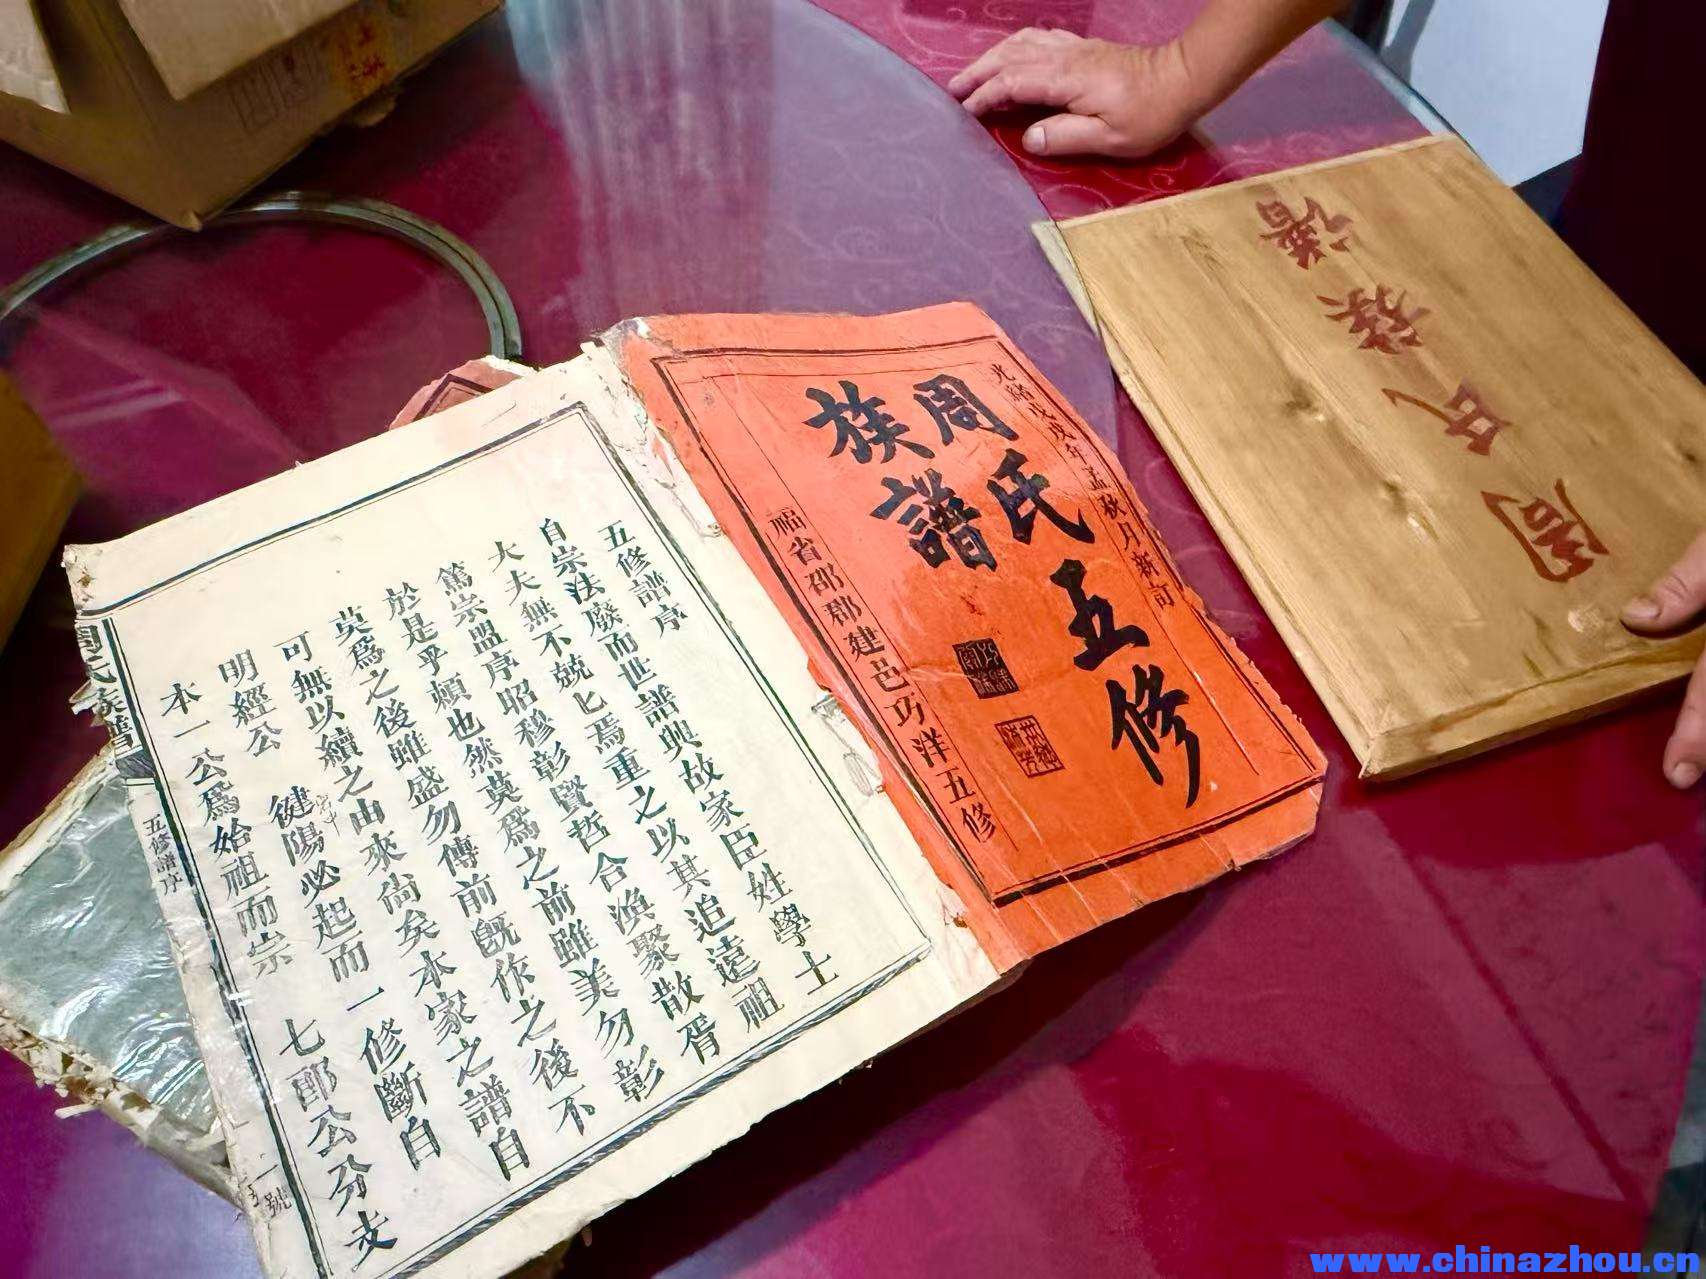 光緒戊戌年孟秋月新訂
周氏五修
族譜
福省邵郡建邑巧洋五修
五修譜序
自宗法廢而世譜興故家臣姓學士
大夫無不兢匕焉重之以其追遠祖
篤宗盟序昭穆彰賢哲合渙聚散胥
於是乎頼也然莫爲之前雖美勿彰
莫爲之後雖盛勿傳前旣作之後不
可無以續之由來尚矣本家之譜自
明經公 徤陽必起而一修斷自
本一公爲始祖而宗 七郎公分支
周氏族譜
五修譜序
號
周氏族譜
www.chinazhou.cn